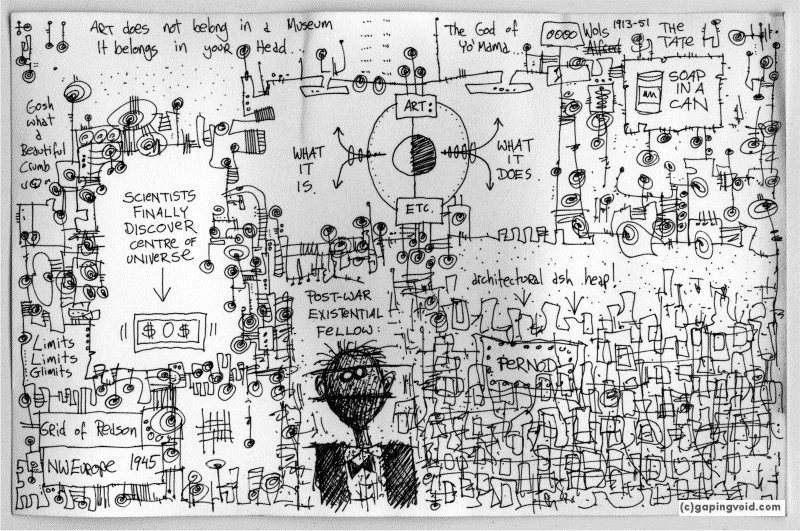 ART does not belong in a Museum
It belongs in your Head...
The God of
Yo' Mama...
Wols 1913-51
Alfred
THE
TATE
SOAP
IN A
CAN
Gosh
what
a
Beautiful
Crumb
ART:
WHAT
IT
IS.
WHAT
IT
DOES
ETC.
SCIENTISTS
FINALLY
DISCOVER
CENTRE OF
UNIVERSE
$ 0 $
POST-WAR
EXISTENTIAL
FELLOW:
architectural ash heap!
PERNOD
Limits
Limits
Glimits
GRid of Redson
NW EUROPE 1945
(c)gapingvoid.com